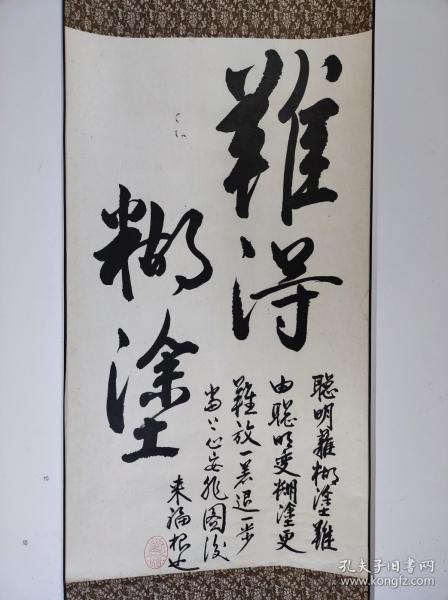 難得
糊塗
聰明難糊塗難
由聰明變糊塗更
難放一著退一步
當下心安非圖後
来福报也
孔夫子旧书网
www.kongfz.com